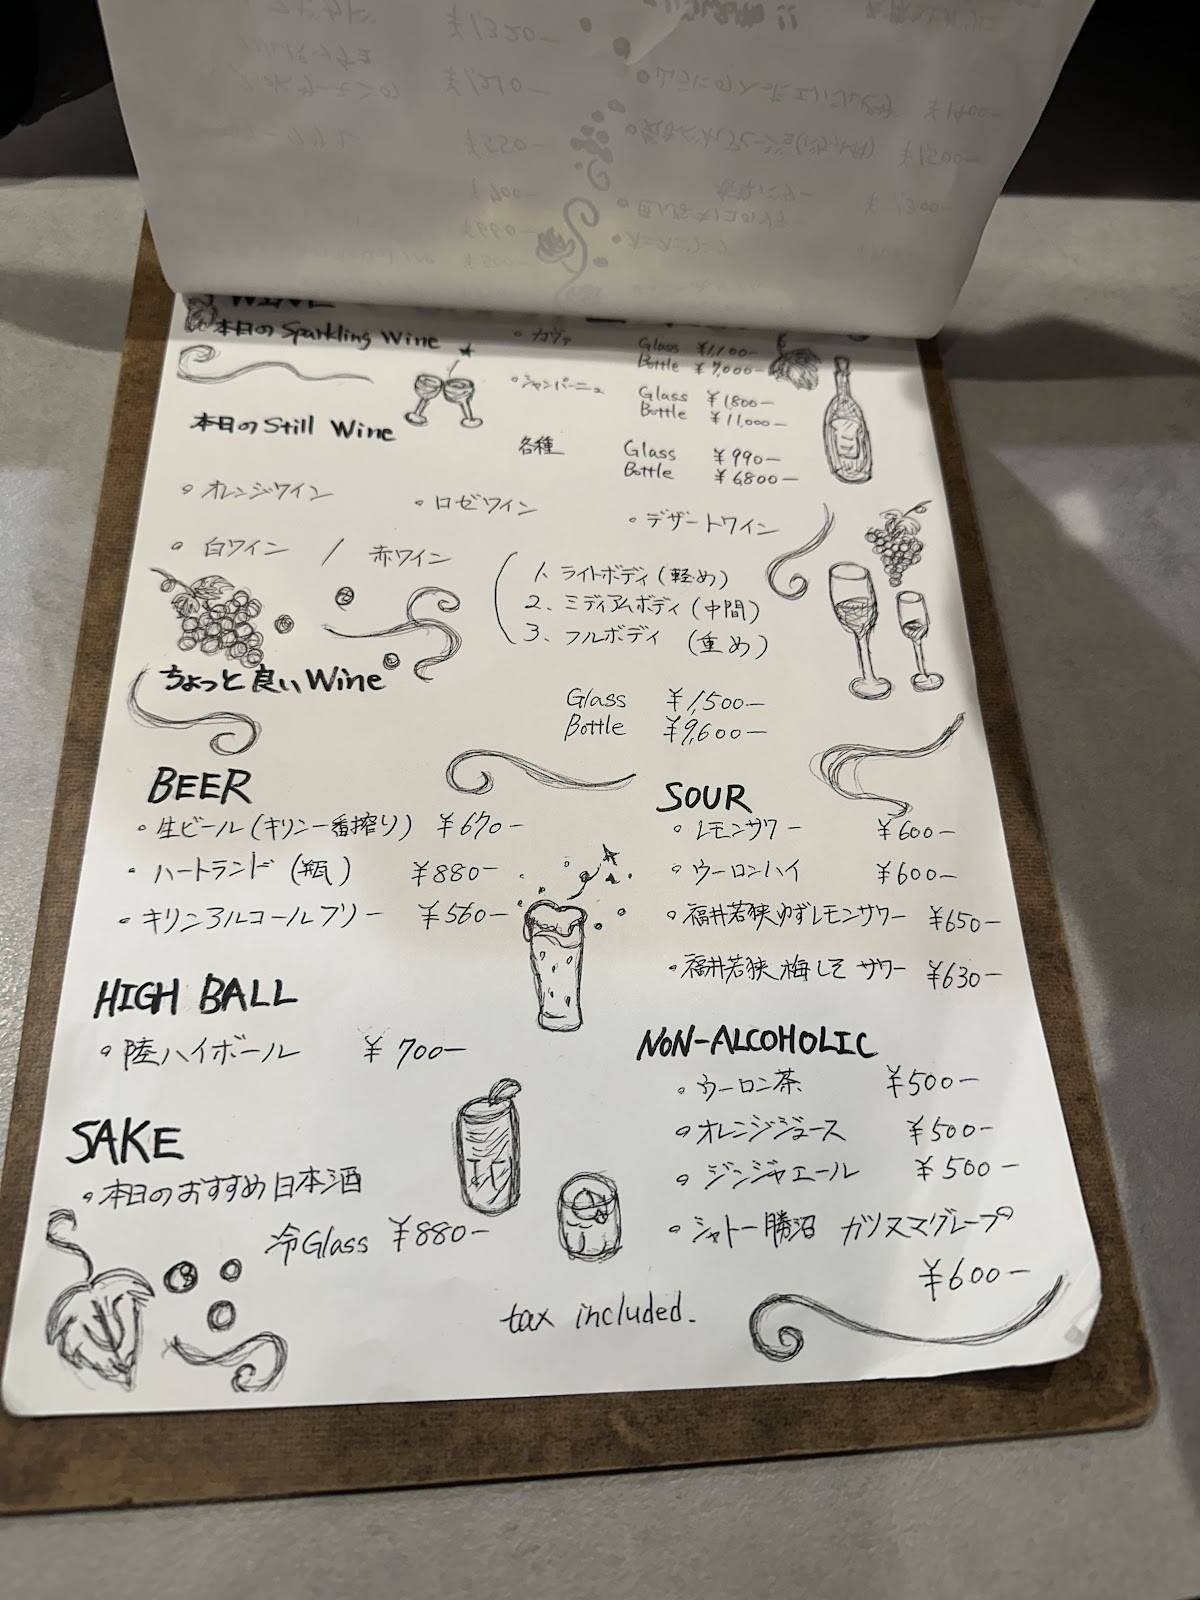 WINE
本日のSparkling Wine
・カヴァ Glass ¥1,100-
Bottle ¥7,000-
・シャンパーニュ Glass ¥1800-
Bottle ¥11,000-
本日のStill Wine
各種 Glass ¥990-
Bottle ¥6800-
・オレンジワイン ・ロゼワイン ・デザートワイン
・白ワイン / 赤ワイン
1、ライトボディ(軽め)
2、ミディアムボディ(中間)
3、フルボディ (重め)
ちょっと良いWine
Glass ¥1,500-
Bottle ¥9,600-
BEER
・生ビール(キリン一番搾り) ¥670-
・ハートランド(瓶) ¥880-
・キリンアルコールフリー ¥560-
HIGH BALL
・陸ハイボール ¥700-
SAKE
・本日のおすすめ日本酒
冷Glass ¥880-
SOUR
・レモンサワー ¥600-
・ウーロンハイ ¥600-
・福井若狭ゆずレモンサワー ¥650-
・福井若狭梅しそサワー ¥630-
NON-ALCOHOLIC
・ウーロン茶 ¥500-
・オレンジジュース ¥500-
・ジンジャエール ¥500-
・シャトー勝沼 カツヌマグレープ
¥600-
tax included.